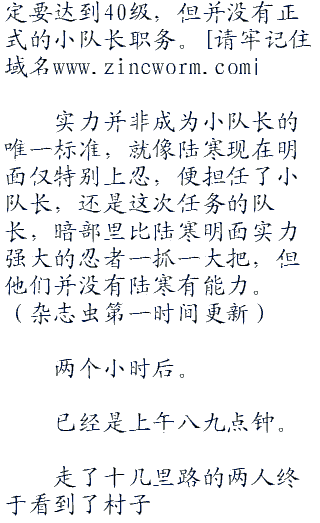 定要达到40级，但并没有正
式的小队长职务。[请牢记住
域名www.zincworm.com|

实力并非成为小队长的
唯一标准，就像陆寒现在明
面仅特别上忍，便担任了小
队长，还是这次任务的队
长，暗部里比陆寒明面实力
强大的忍者一抓一大把，但
他们并没有陆寒有能力。
（杂志虫第一时间更新）

两个小时后。

已经是上午八九点钟。

走了十几里路的两人终
于看到了村子